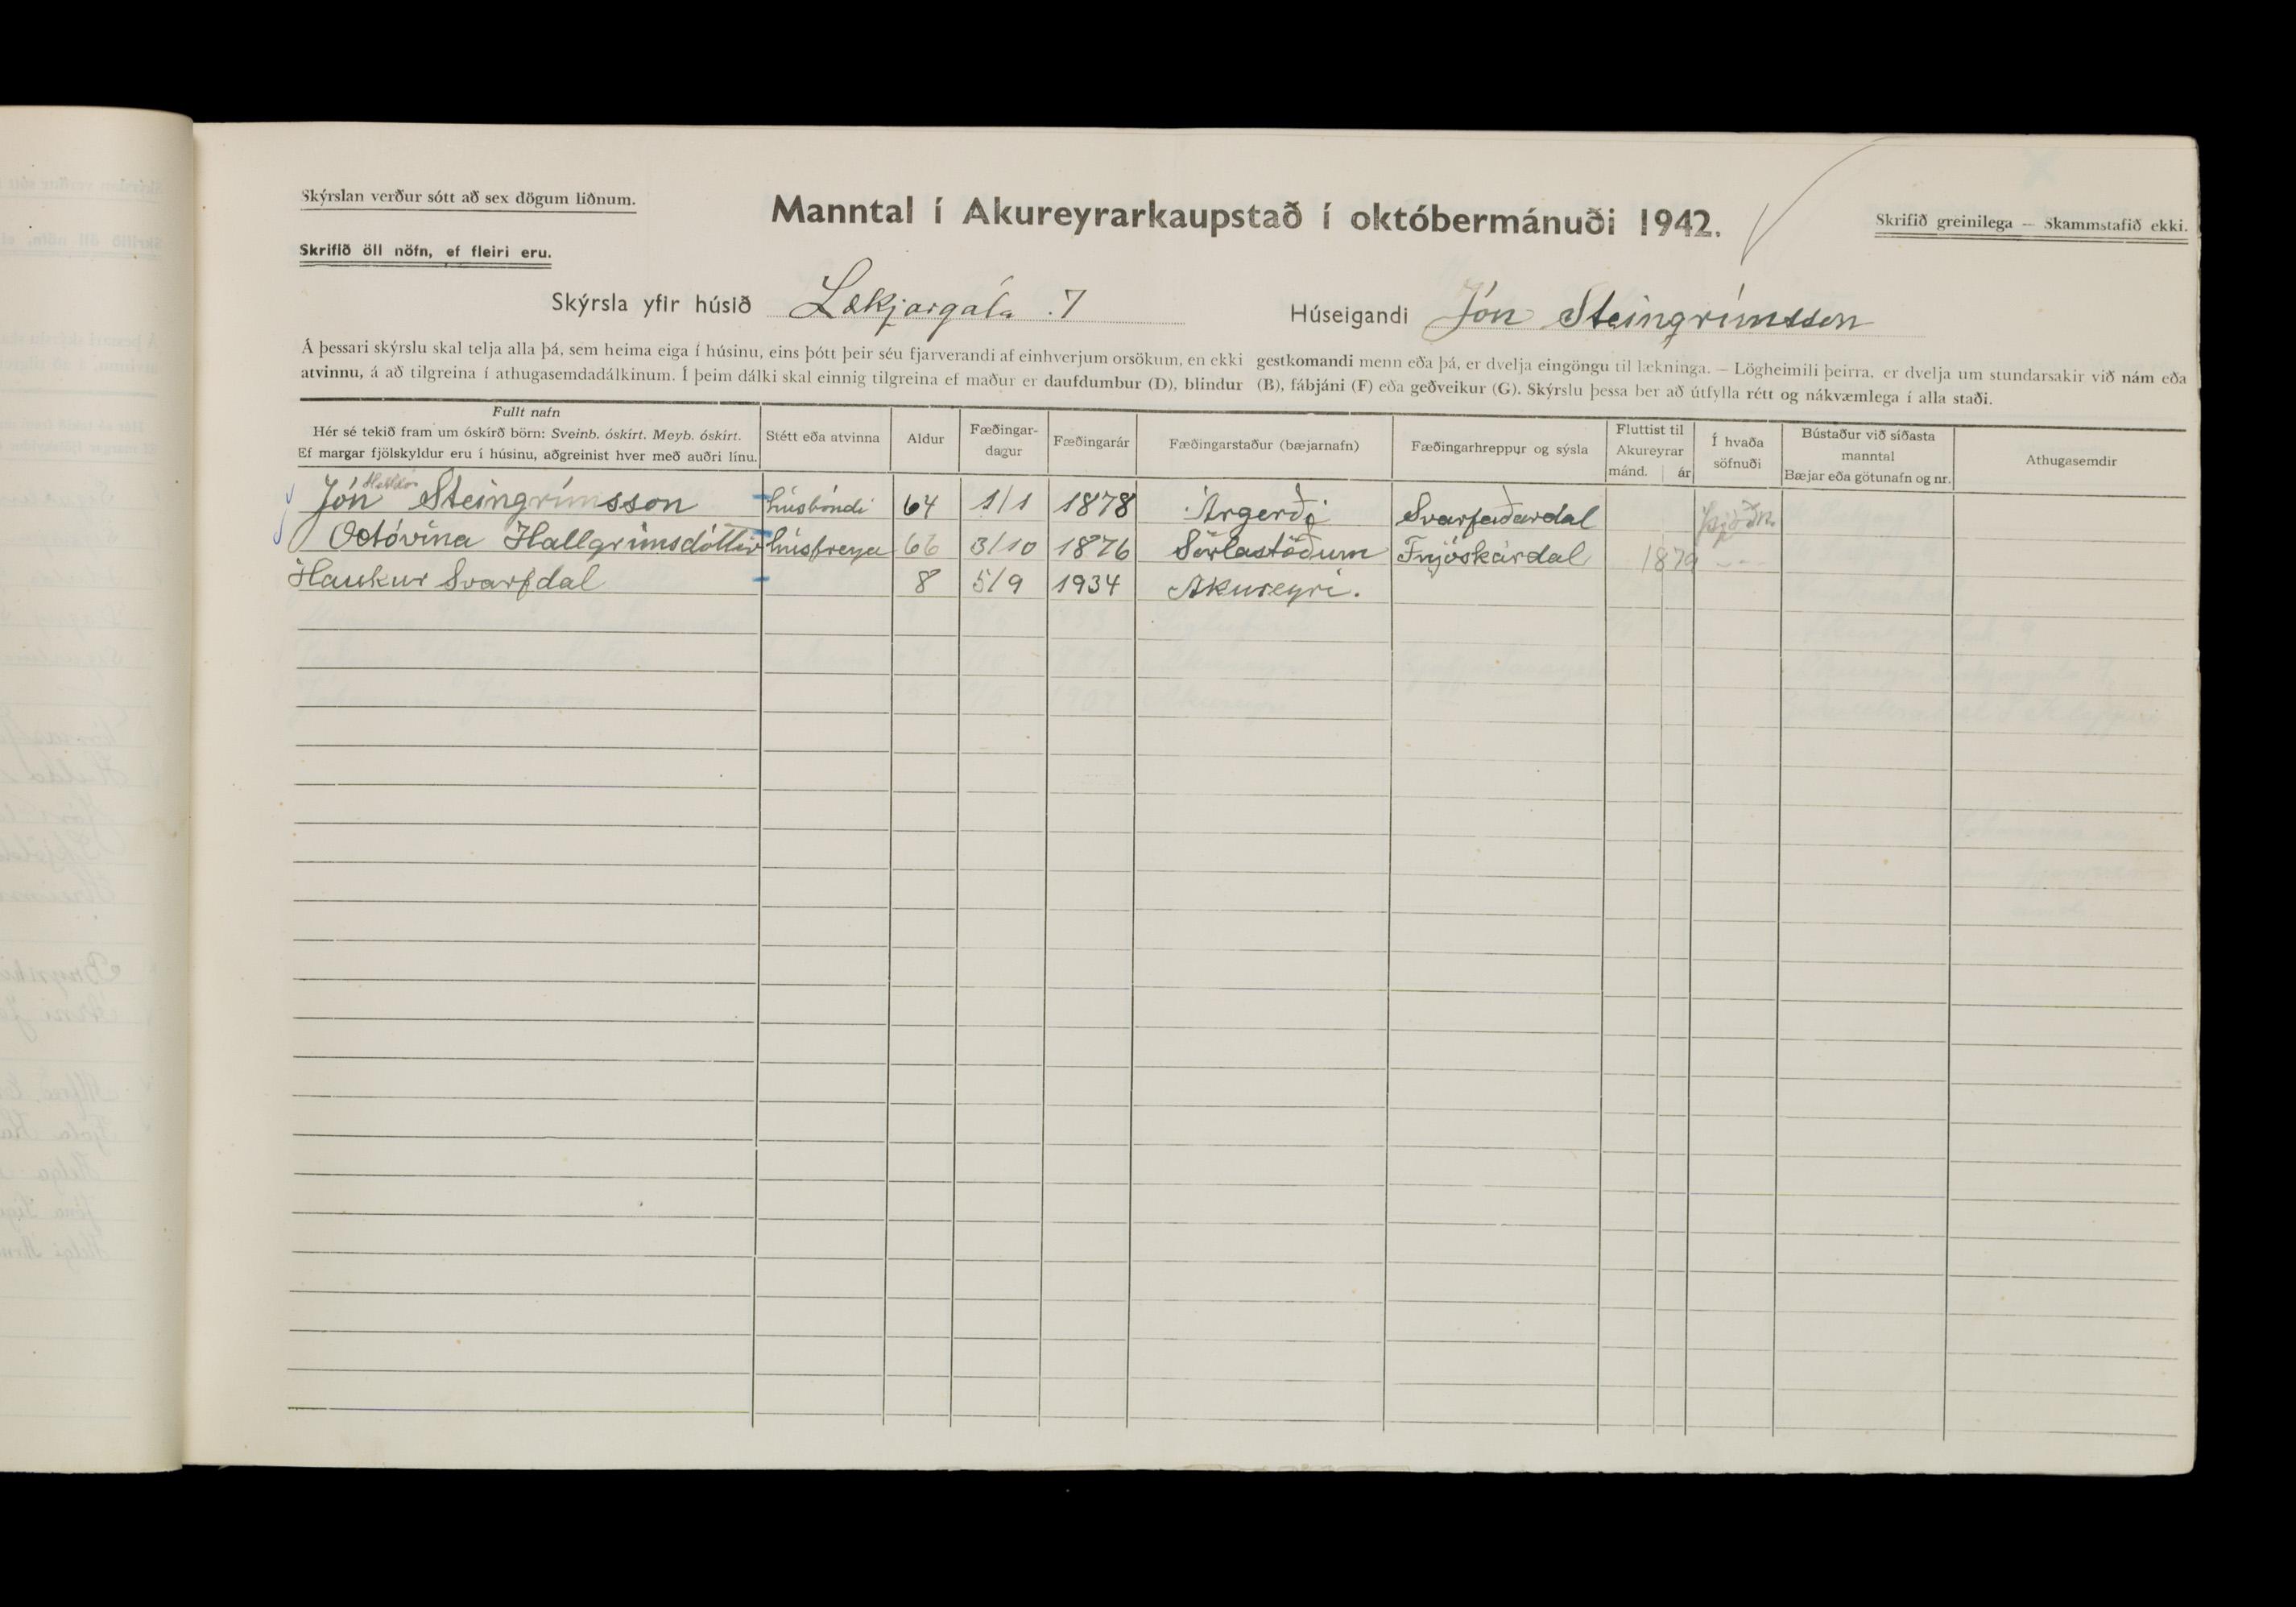 Skýrslan verður sótt að sex dögum liðnum.
Skrifið öll nöfn, ef fleiri eru.
Manntal í Akureyrarkaupstað í októbermánuði 1942.
Skrifið greinilega — Skammstafið ekki.
Skýrsla yfir húsið Lækjargáta 7 Húseigandi Jón Steingrímsson
Á þessari skýrslu skal telja alla þá, sem heima eiga í húsinu, eins þótt þeir séu fjarverandi af einhverjum orsökum, en ekki gestkomandi menn eða þá, er dvelja eingöngu til lækninga. — Lögheimili þeirra, er dvelja um stundarsakir við nám eða
atvinnu, á að tilgreina í athugasemdadálkinum. Í þeim dálki skal einnig tilgreina ef maður er daufdumbur (D), blindur (B), fábjáni (F) eða geðveikur (G). Skýrslu þessa ber að útfylla rétt og nákvæmlega í alla staði.
Fullt nafn
Hér sé tekið fram um óskírð börn: Sveinb. óskírt. Meyb. óskírt.
Ef margar fjölskyldur eru í húsinu, aðgreinist hver með auðri línu.
Stétt eða atvinna
Aldur
Fæðingar-
dagur
Fæðingarár
Fæðingarstaður (bæjarnafn)
Fæðingarhreppur og sýsla
Fluttist til
Akureyrar
mánd. ár
Í hvaða
söfnuði
Bústaður við síðasta
manntal
Bæjar eða götunafn og nr.
Athugasemdir
Jón Steingrímsson húsbóndi 64 1/1 1878 Árgerði Svarfaðardal Þjóðk.
Octóvína Hallgrímsdóttir húsfreya 66 3/10 1876 Sörlastöðum Fnjóskárdal 1879 - - -
Haukur Svarfdal 8 5/9 1934 Akureyri.